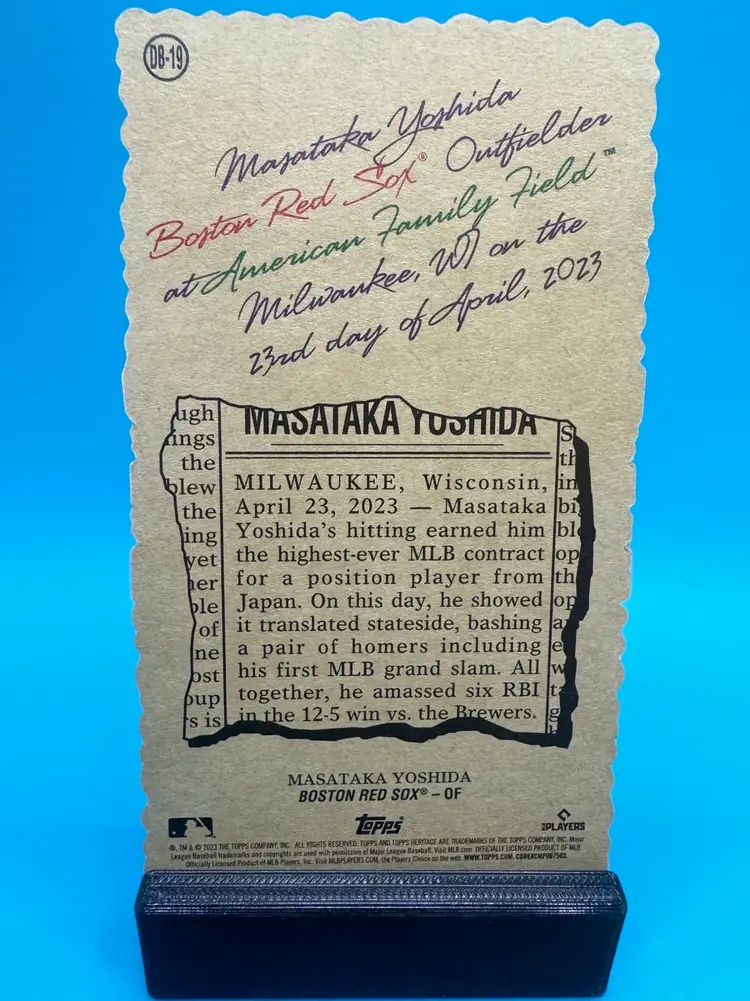 DB-19
Masataka Yoshida
Boston Red Sox® Outfielder
at American Family Field™
Milwaukee, WI on the
23rd day of April, 2023
MASATAKA YOSHIDA
MILWAUKEE, Wisconsin,
April 23, 2023 — Masataka
Yoshida's hitting earned him
the highest-ever MLB contract
for a position player from
Japan. On this day, he showed
it translated stateside, bashing
a pair of homers including
his first MLB grand slam. All
together, he amassed six RBI
in the 12-5 win vs. the Brewers.
ugh
ings
the
blew
the
ing
yet
her
ple
of
ne
ost
oup
s is
S
th
in
big
blo
op
th
op
a
e
w
ta
g
MASATAKA YOSHIDA
BOSTON RED SOX® – OF
Topps
PLAYERS
®, TM & © 2023 THE TOPPS COMPANY, INC. ALL RIGHTS RESERVED. TOPPS AND TOPPS HERITAGE ARE TRADEMARKS OF THE TOPPS COMPANY, INC. Major
League Baseball trademarks and copyrights are used with permission of Major League Baseball. Visit MLB.com. OFFICIALLY LICENSED PRODUCT OF MLB
Officially Licensed Product of MLB Players, Inc. Visit MLBPLAYERS.COM, the Players Choice on the web. WWW.TOPPS.COM. CODE#CMP067503.